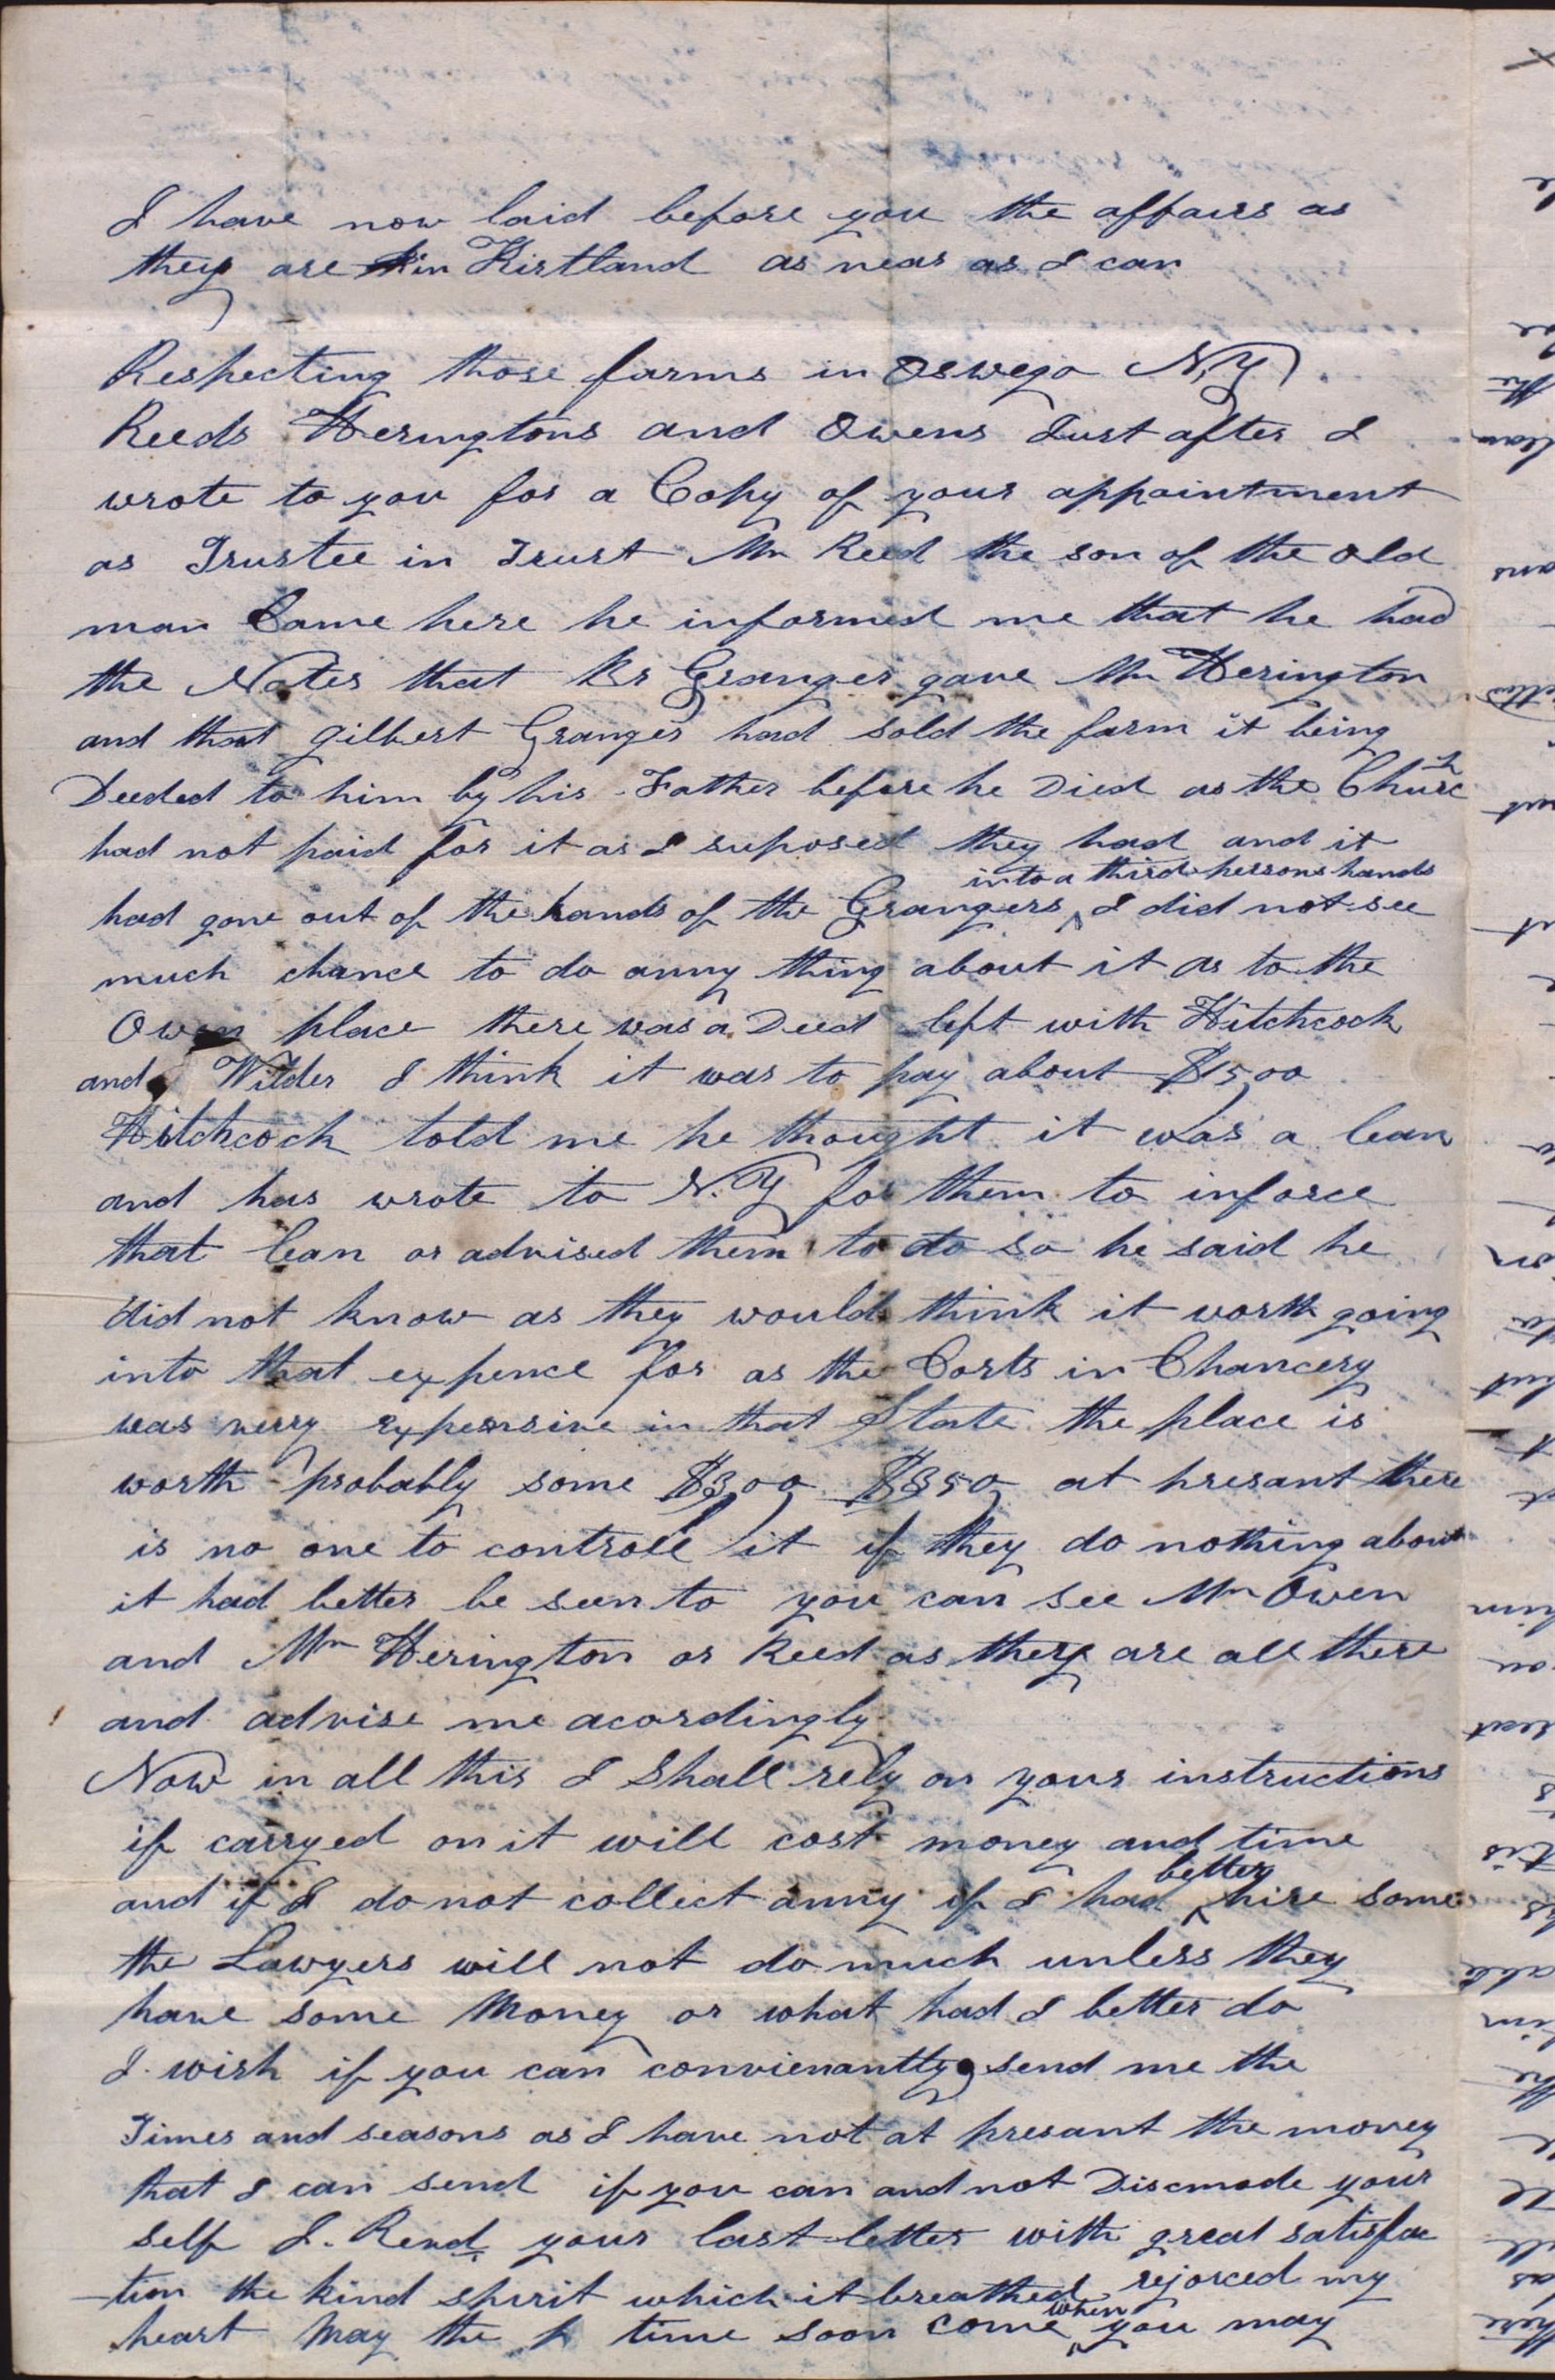 I have now laid before you the affairs as
they are in Kirtland as near as I can
Respecting those farms in Oswego N,Y,
Reeds Heringtons and Owens Just after I
wrote to you for a Copy of your appointment
as Trustee in Trust Mr Reed the son of the old
man Came here he informed me that he had
the Notes that Br Granger gave Mr Herington
and that gilbert Granger had sold the farm it being
Deeded to him by his Father before he Died as the Church
had not paid for it as I suposed they had and it
had gone out of the hands of the Grangers into a third persons hands I did not see
much chance to do anny thing about it as to the
Owen place there was a Deed left with Hitchcock
and Wilder I think it was to pay about $1500
Hitchcock told me he thought it was a lean
and has wrote to N.Y for them to inforce
that lean or advised them to do so he said he
did not know as they would think it worth going
into that expence for as the Corts in Chancery
was verry expensive in that State the place is
worth probably some $300, $350, at presant there
is no one to controll it if they do nothing about
it had better be seen to you can see Mr Owen
and Mr Herington or Reed as they are all there
and advise me acordingly
Now in all this I Shall rely on your instructions
if carryed on it will cost money and time
and if I do not collect anny if I had better hire some
the Lawyers will not do much unless they
have some Money or what had I better do
I wish if you can convienantly send me the
Times and seasons as I have not at presant the money
that I can send if you can and not Discmode your
self I. Read your last letter with great satisfac
-tion the kind spirit which it breathed rejoiced my
heart May the time soon come when you may